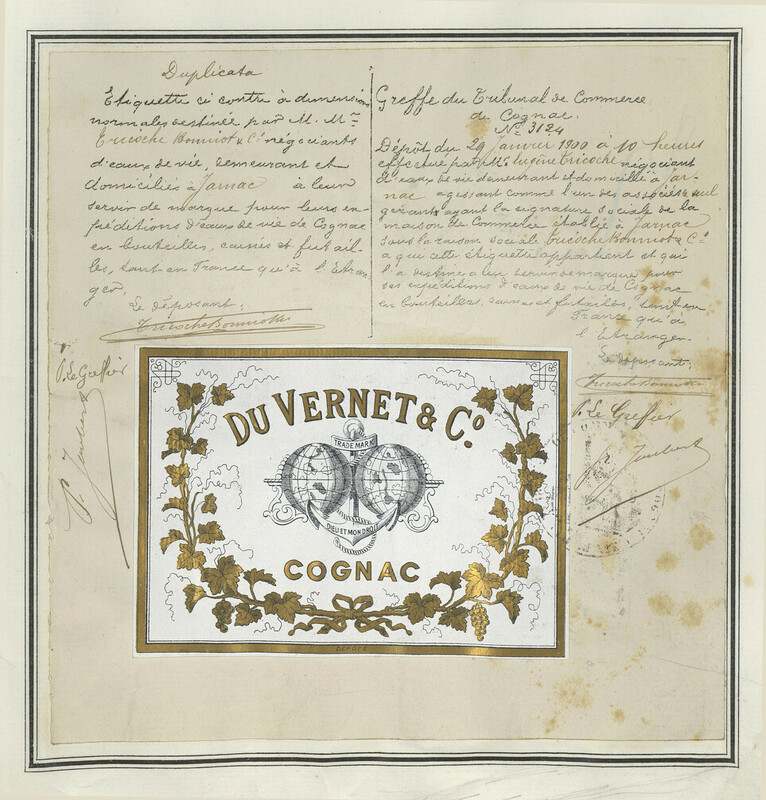 Duplicata
Etiquette ci contre à dimension
normales destinée par M. Mrs
Tricoche Bonniot & Co négociants
d'eaux de vie, demeurant et
domiciliés à Jarnac à leur
servir de marque pour leurs ex-
péditions d'eaux de vie de Cognac
en bouteilles, caisses et futail-
les, tant en France qu'à l'Etran
ger.
Le déposant:
Tricoche Bonniot & Co
P. Le Greffier
P. Joubert
Greffe du Tribunal de Commerce
de Cognac.
No 3124
Dépôt du 29 Janvier 1900 à 10 heures
effectué par Mr Eugène Tricoche négociant
d'eaux de vie demeurant et domicilié à Jar-
nac agissant comme l'un des associés seul
gérants ayant la signature sociale de la
maison de Commerce établie à Jarnac
sous la raison sociale Tricoche Bonniot & Co
a qui cette étiquette appartient et qui
l'a destinée à leur servir de marque pour
ses expéditions d'eaux de vie de Cognac
en bouteilles, caisses et futailles, tant en
France qu'à
l'Etranger.
Le déposant:
Tricoche Bonniot & Co
P. Le Greffier
P. Joubert
DU VERNET & Co.
TRADE MARK
DIEU ET MON DROIT
COGNAC
DÉPOSÉ